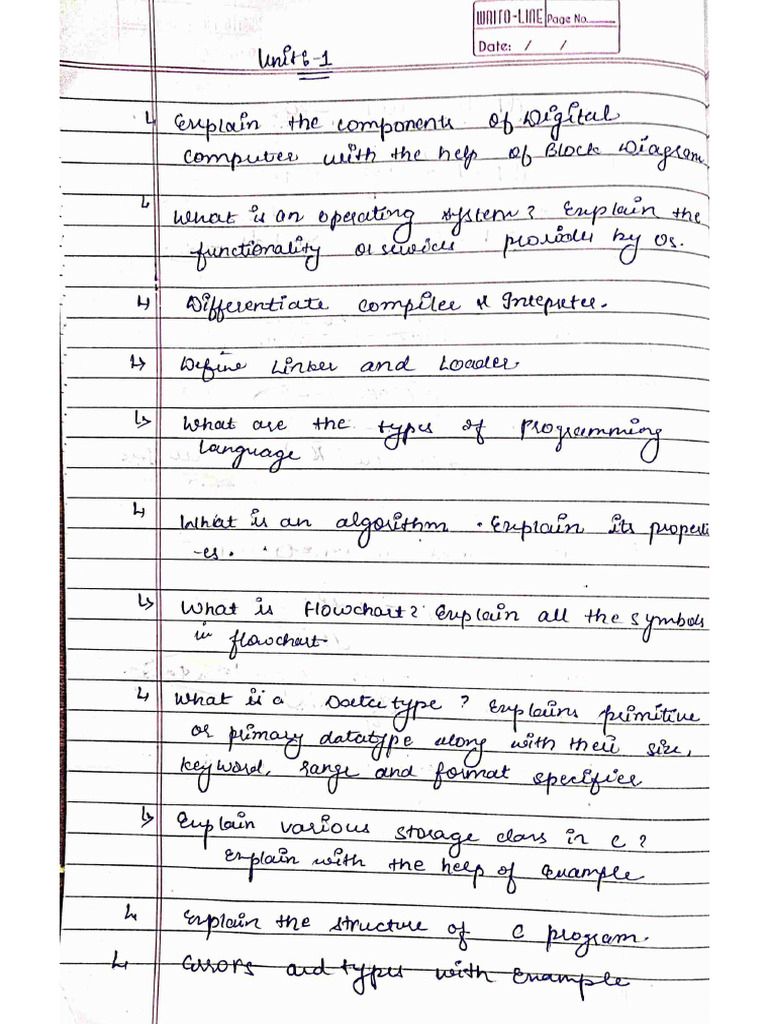 WRITO-LINE Page No.
Date: / /
Unit-1
↳ Explain the components of Digital
computer with the help of Block Diagram
↳ What is an operating system? Explain the
functionality or services provides by OS.
↳ Differentiate compiler & Intepreter.
↳ Define Linker and Loader.
↳ What are the types of Programming
language
↳ What is an algorithm. Explain its properti
-es.
↳ What is flowchart? Explain all the symbols
in flowchart
↳ What is a Datatype? Explains primitive
or primary datatype along with their size,
keyword, range and format specifier
↳ Explain various storage class in C?
Explain with the help of Example
↳ Explain the structure of C program.
↳ Errors and types with Example